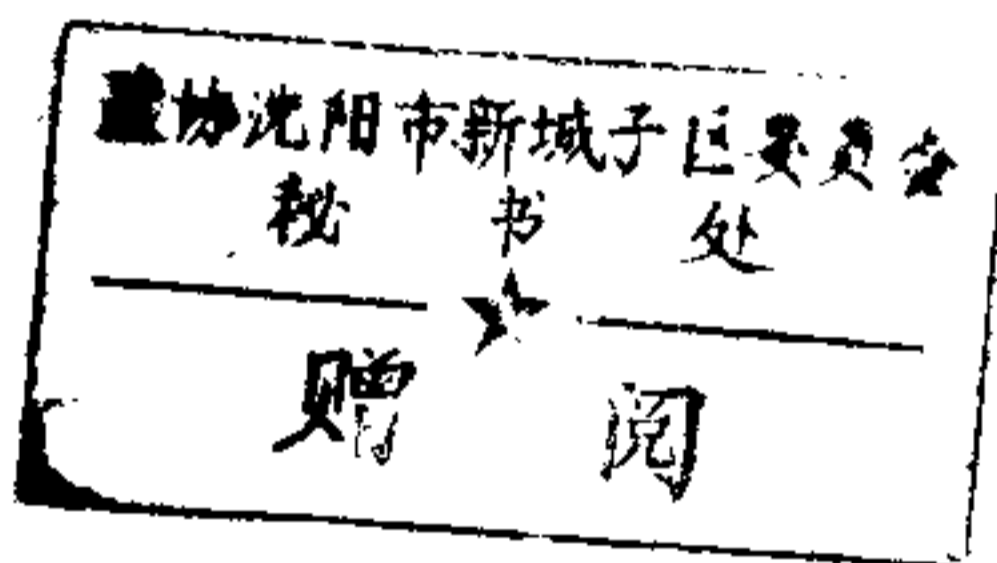 协沈阳市新城子区委员会
秘书处
赠阅